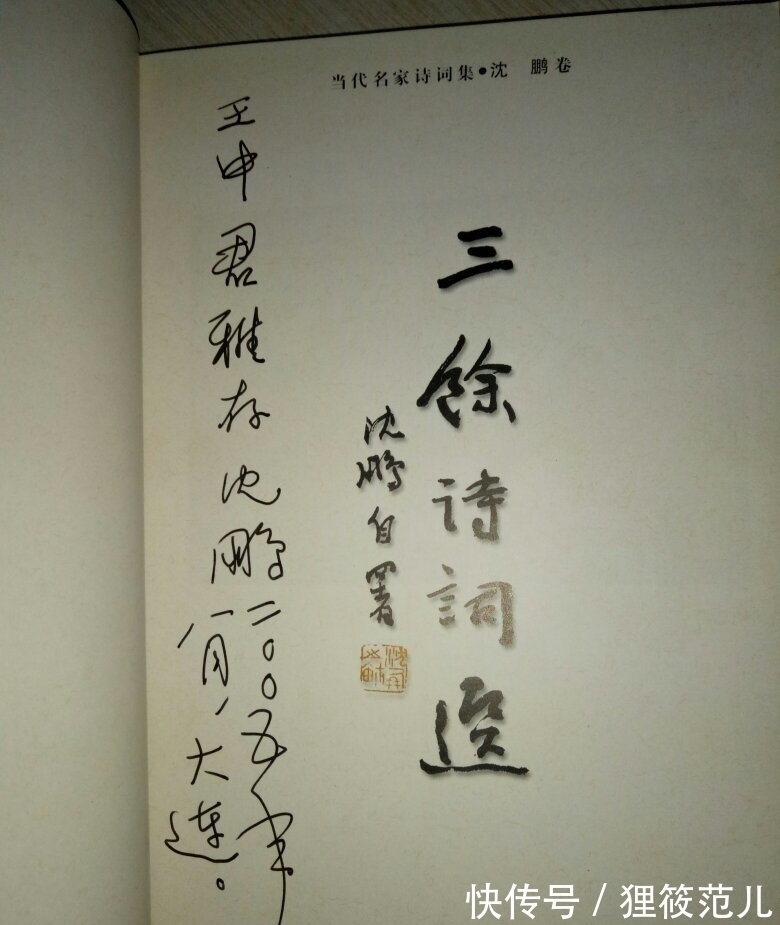 当代名家诗词集●沈 鹏卷
三餘诗詞選
沈鹏自署
王申君雅存沈鹏
二〇〇五年
八月，大连。
快传号 / 狸筱范儿